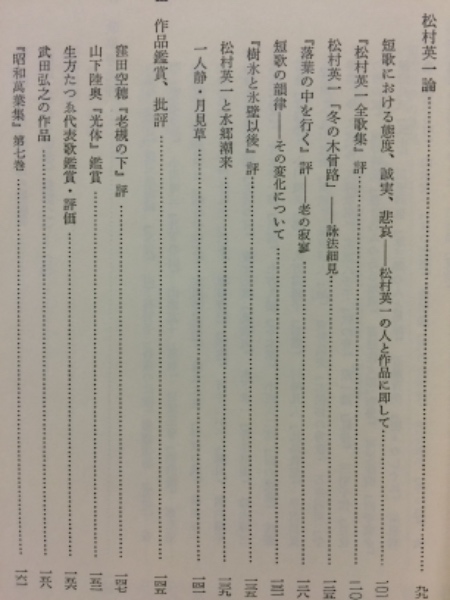 松村英一論 九九
短歌における態度、誠実、悲哀――松村英一の人と作品に即して 一〇一
『松村英一全歌集』評
松村英一『冬の木曾路』――詠法細見
『落葉の中を行く』評――老の寂寥 一二八
短歌の韻律――その変化について 一三一
『樹氷と氷壁以後』評 一三五
松村英一と水郷潮来 一三九
一人静・月見草 一四一
作品鑑賞、批評 一四五
窪田空穂『老槻の下』評 一四七
山下陸奥『光体』鑑賞 一五二
生方たつゑ代表歌鑑賞・評価 一五六
武田弘之の作品 一五八
『昭和萬葉集』第七巻 一六一